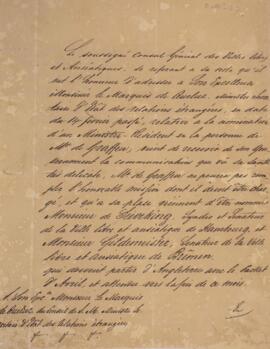 Le soussigné Consul Général des Villes libres
et Anséatiques, se référant à sa note qu'il
eut l'honneur d'adresser à Son Excellence
Monsieur le Marquis de Queluz, Ministre
d'Etat des relations étrangères, en date
du 14 février passé, relative à la nomination
d'un Ministre-Résident en la personne de
Mr. de Graffen, vient de recevoir de son Gou-
vernement la communication que vu la santé
très délicate, Mr. de Graffen ne pourra pas rem-
plir l'honorable mission dont il devait être char-
gé, et qu'à sa place viennent d'être nommés
Monsieur de Sieveking, Syndic et Senateur
de la Ville libre et anséatique de Hambourg, et
Monsieur Gildemeister, Senateur de la Ville
libre et anséatique de Brêmen
qui devront partir d'Angleterre avec le Paquet
d'Avril, et attendus vers la fin de ce mois.
à Son Exc. Monsieur le Marquis
de Queluz, du Conseil de S. M. Ministre
d'Etat des Relations étrangères